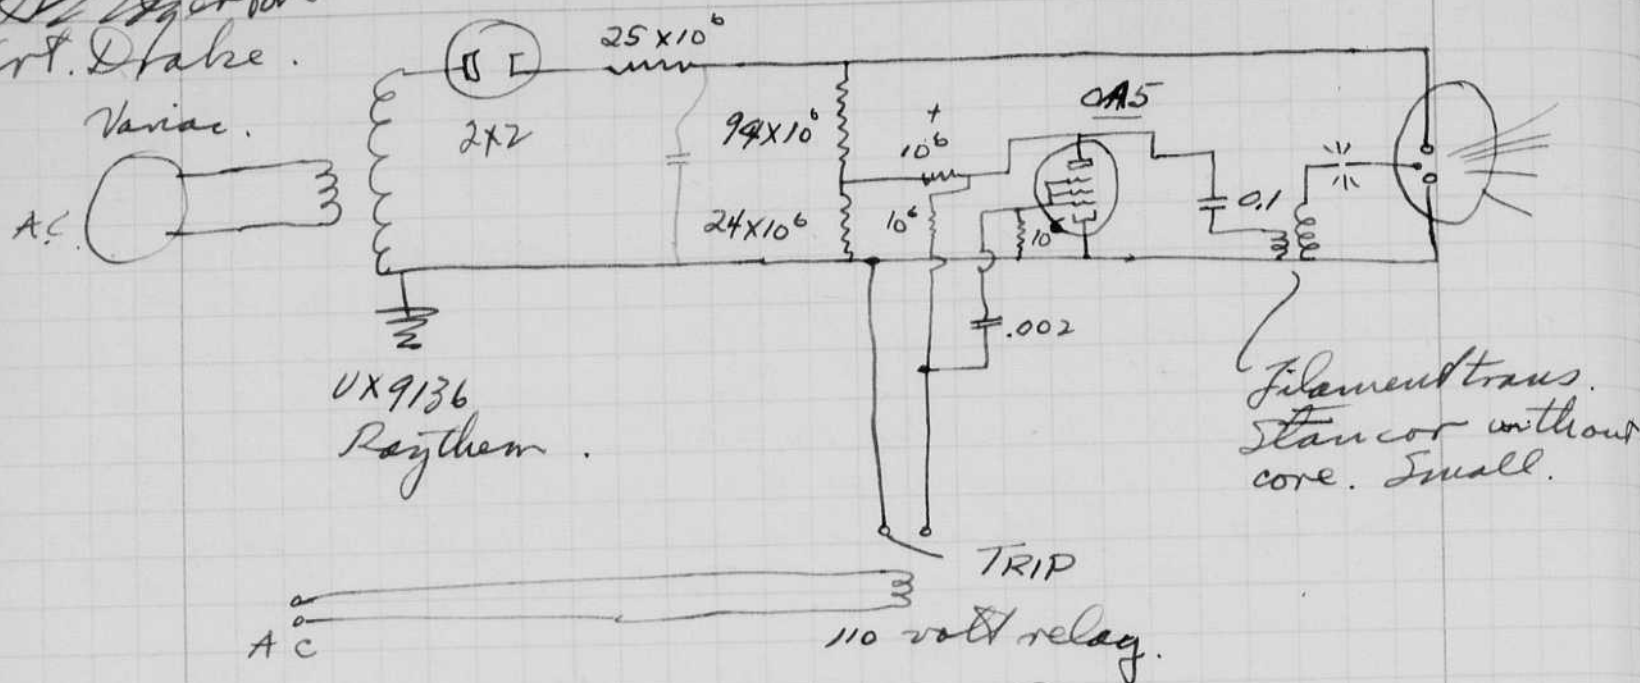 rt. Drake.
Variac.
A.C.
2X2
25 x 10⁶
94x10⁶
24x10⁶
+
10⁶
10⁶
10⁶
OA5
0.1
.002
UX9136
Raytheon.
Filament trans.
Stancor without
core. Small.
TRIP
AC
110 volt relay.